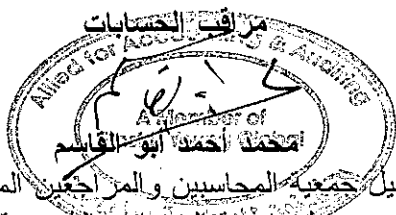 مراقب الحسابات
Allied for Accounting & Auditing
A Member of
Global
محمد أحمد أبو القاسم
جمعية المحاسبين والمراجعين